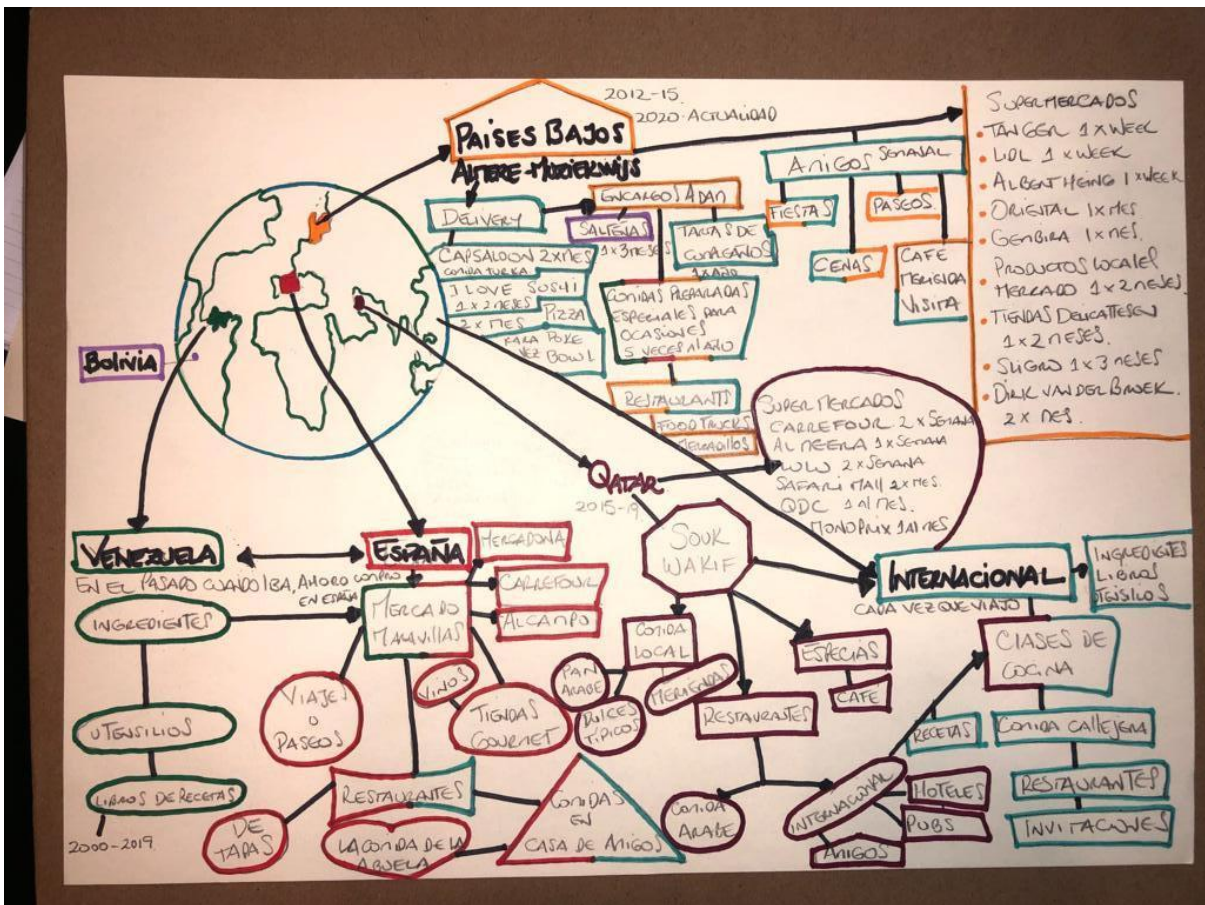 2012-15.
2020-ACTUALIDAD
PAISES BAJOS
DELIVERY
CAPSALOON 2XMES
COMIDA TURKA
I LOVE SUSHI
1 X 2 MESES
PIZZA
2 X MES
RARA VEZ
POKE BOWL
ENCARGOS A DAN
SALTEÑAS
1 X 3 MESES
TARTAS DE
CUMPLEAÑOS
1 X AÑO
COMIDAS PREPARADAS
ESPECIALES PARA
OCASIONES
5 VECES AL AÑO
RESTAURANTS
FOOD TRUCKS
MERCADILLOS
AMIGOS SEMANAL
FIESTAS
CENAS
PASEOS
CAFE
MERIENDA
VISITA
SUPERMERCADOS
• TANGER 1 X WEEK
• LIDL 1 X WEEK
• ALBERT HEING 1 X WEEK
• ORIENTAL 1X MES
• GEMBIRA 1X MES.
• PRODUCTOS LOCALES
MERCADO 1 X 2 MESES.
• TIENDAS DELICATTESEN
1 X 2 MESES.
• SLIGRO 1 X 3 MESES
• DIRK VAN DER BROEK.
2 X MES.
Bolivia
QATAR
2015-19.
SUPERMERCADOS
CARREFOUR 2 X SEMANA
AL MEERA 1 X SEMANA
LULU 2 X SEMANA
SAFARI MALL 2 X MES.
QDC 1 AL MES.
MONOPRIX 1 AL MES
SOUK
WAKIF
COMIDA
LOCAL
PAN
ARABE
DULCES
TÍPICOS
MERIENDAS
ESPECIAS
CAFE
RESTAURANTES
COMIDA
ARABE
INTERNACIONAL
HOTELES
PUBS
AMIGOS
VENEZUELA
EN EL PASADO CUANDO IBA, AHORO COMPRO
EN ESPAÑA
INGREDIENTES
UTENSILIOS
LIBROS DE RECETAS
2000-2019
ESPAÑA
MERCADONA
CARREFOUR
ALCAMPO
MERCADO
MARAVILLAS
VIAJES
O
PASEOS
VINOS
TIENDAS
GOURMET
RESTAURANTES
DE
TAPAS
LA COMIDA DE LA
ABUELA
COMIDAS
EN
CASA DE AMIGOS
INTERNACIONAL
CADA VEZ QUE VIAJO
INGREDIENTES
LIBROS
TENSILOS
CLASES DE
COCINA
RECETAS
COMIDA CALLEJERA
RESTAURANTES
INVITACIONES